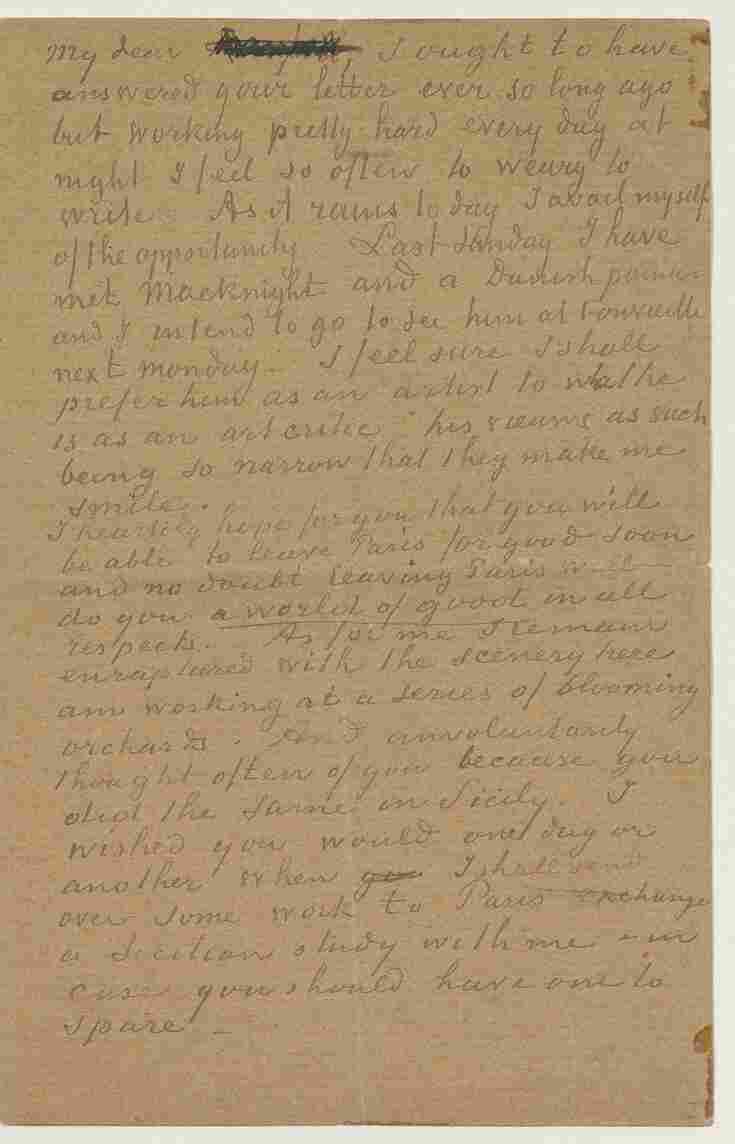 My dear , I ought to have
answered your letter ever so long ago
but working pretty hard every day at
night I feel so often to weary to
write. As it rains to day I avail myself
of the opportunity Last Sunday I have
met Macknight and a Danish painter
and I intend to go to see him at Fonvieille
next monday. I feel sure I shall
prefer him as an artist to what he
is as an art critic his views as such
being so narrow that they make me
smile.
I heartily hope for you that you will
be able to leave Paris for good soon
and no doubt leaving Paris will
do you a world of good in all
respects. As for me I remain
enraptured with the scenery here
am working at a series of blooming
orchards. And unvoluntarily
thought often of you because you
did the same in Sicily. I
wished you would one day or
another when you I shall send
over some work to Paris exchange
a Sicilian study with me – in
case you should have one to
spare –